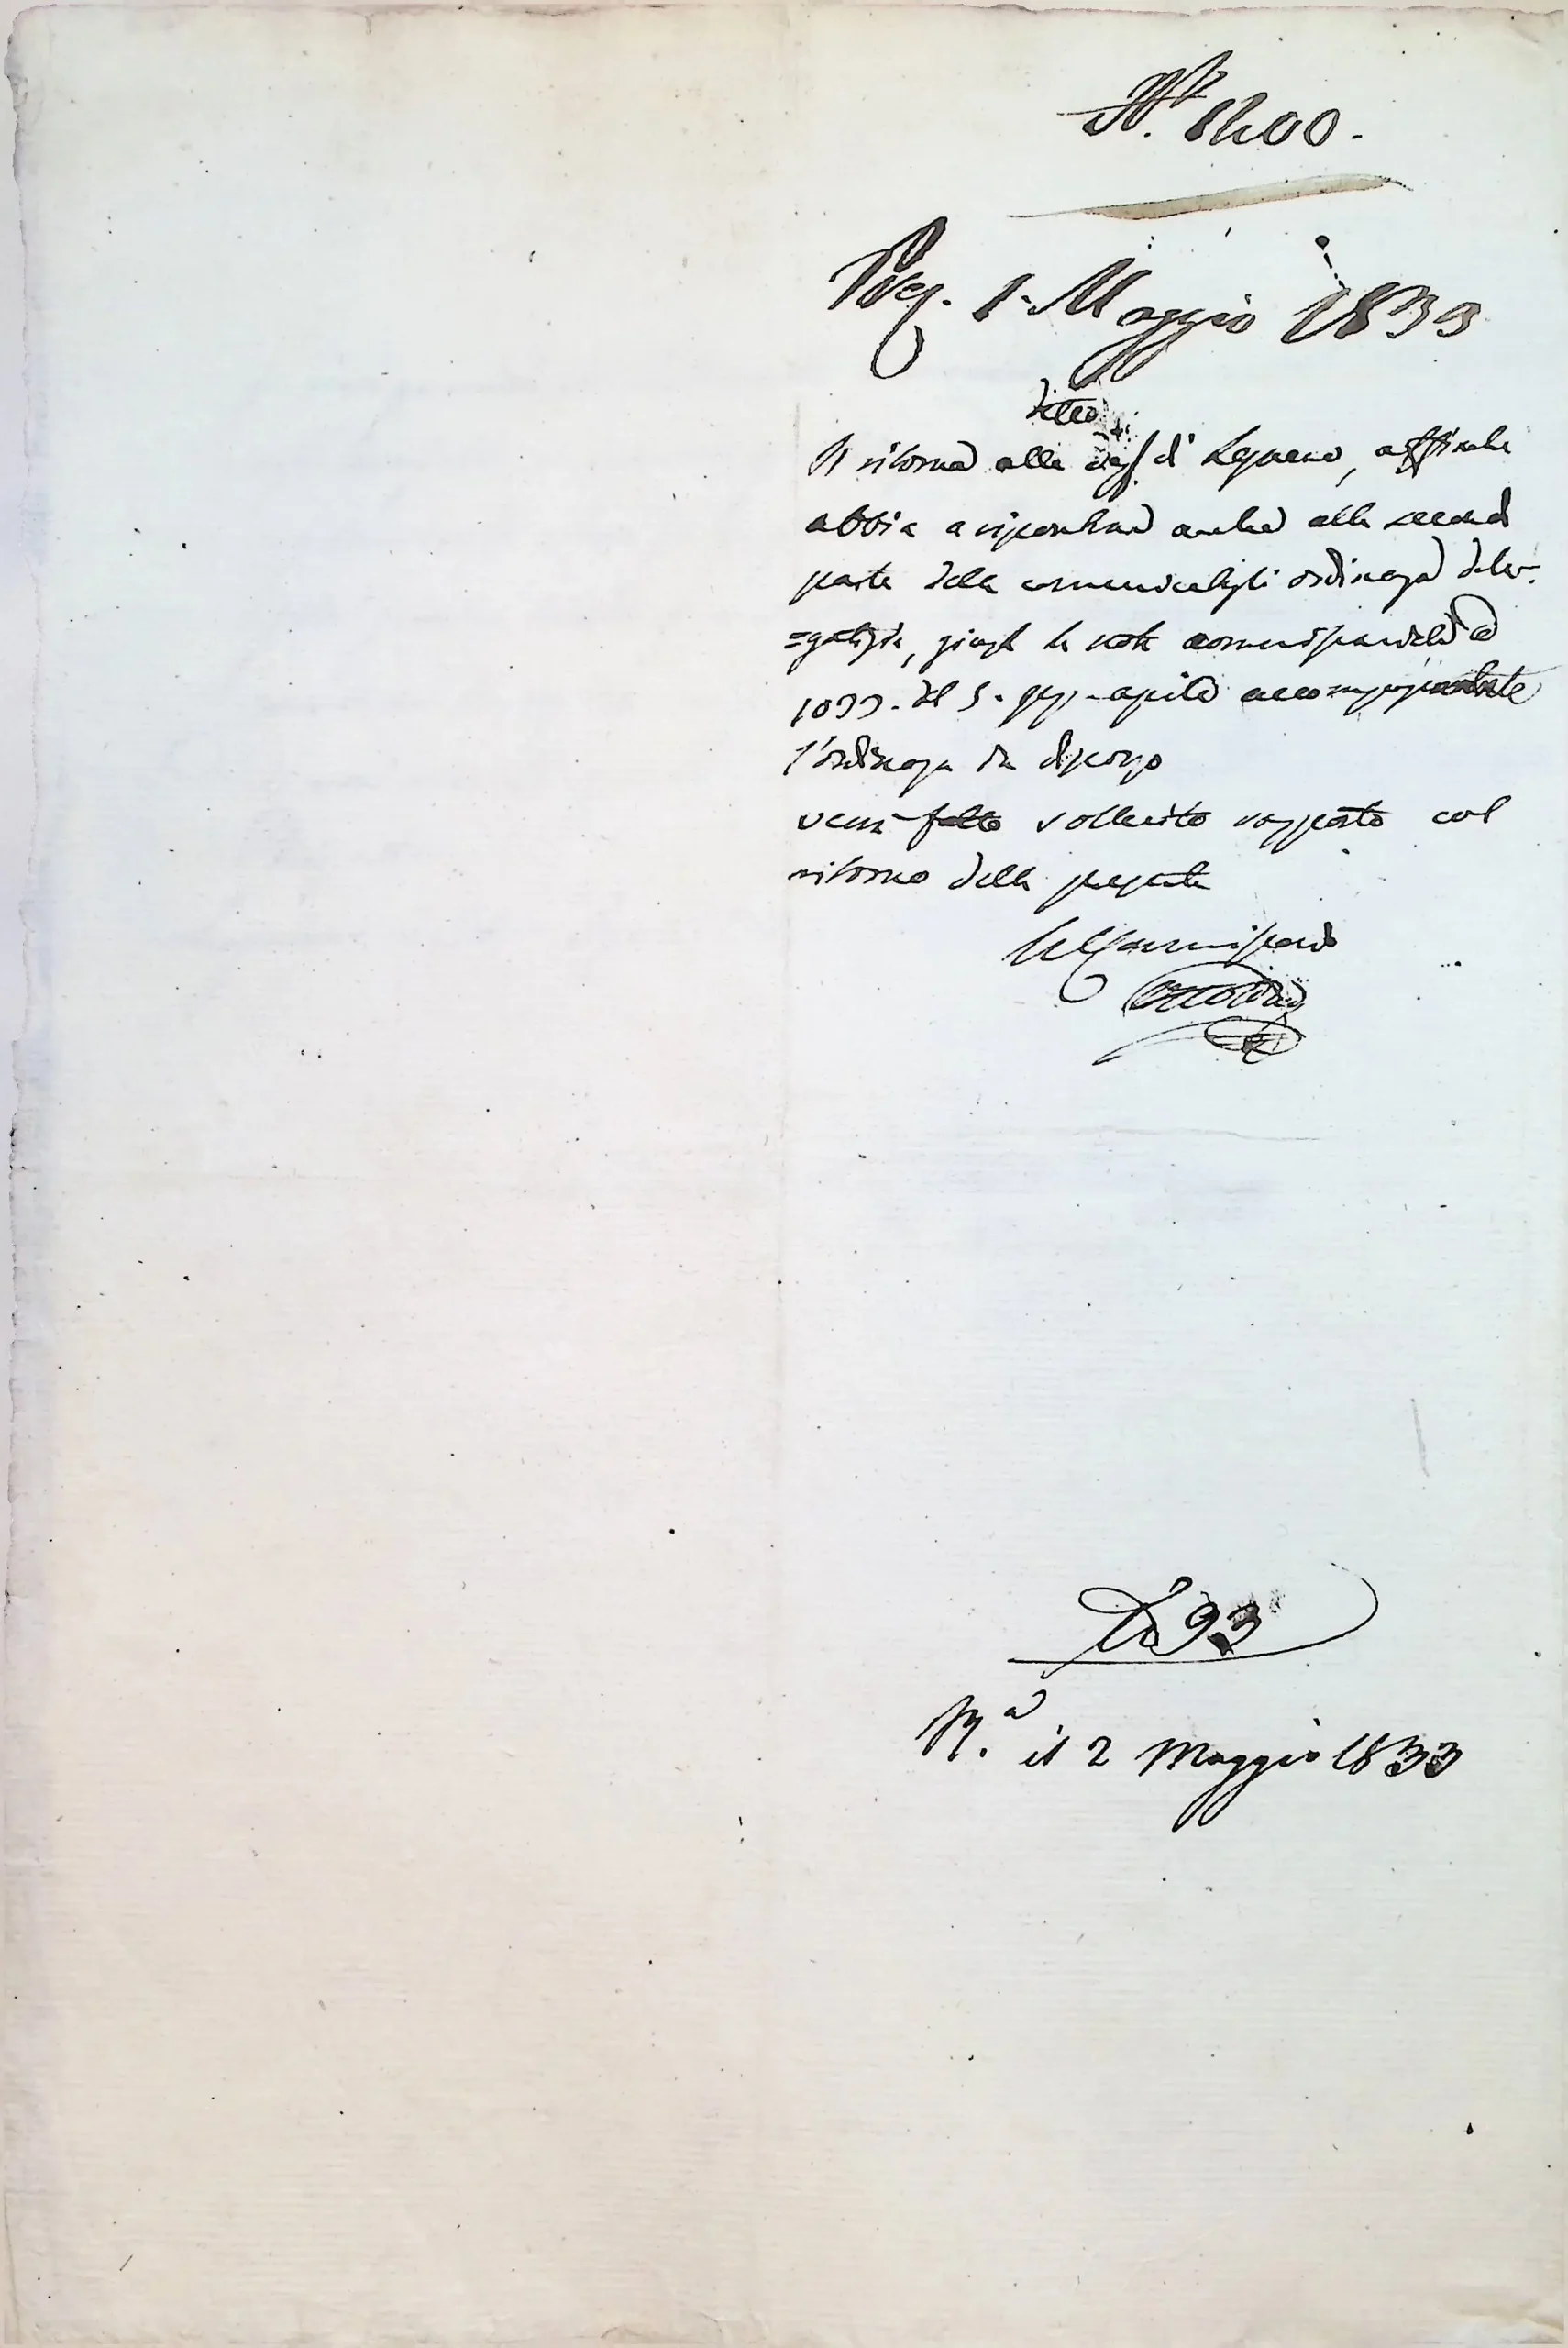 N.° 1200.
Preg. 1. Maggio 1833
Si ritorna alla di Legnano, affinche
abbia a rispondere anche alla seconda
parte della comunicatagli ordinanza dele-
=gatizia, giusta la nota commissariale
1033. del 5. apile accompagnante
l'ordinanza in discorso
verrà fatto sollecito rapporto col
ritorno della presente
Il Commissario
N.° 93
R.ª il 2 Maggio 1833